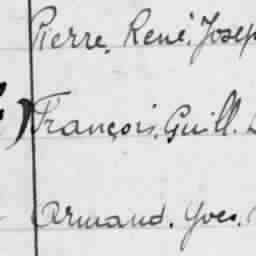 Pierre, René, Josep
François, Guill.
Armand, Yves,